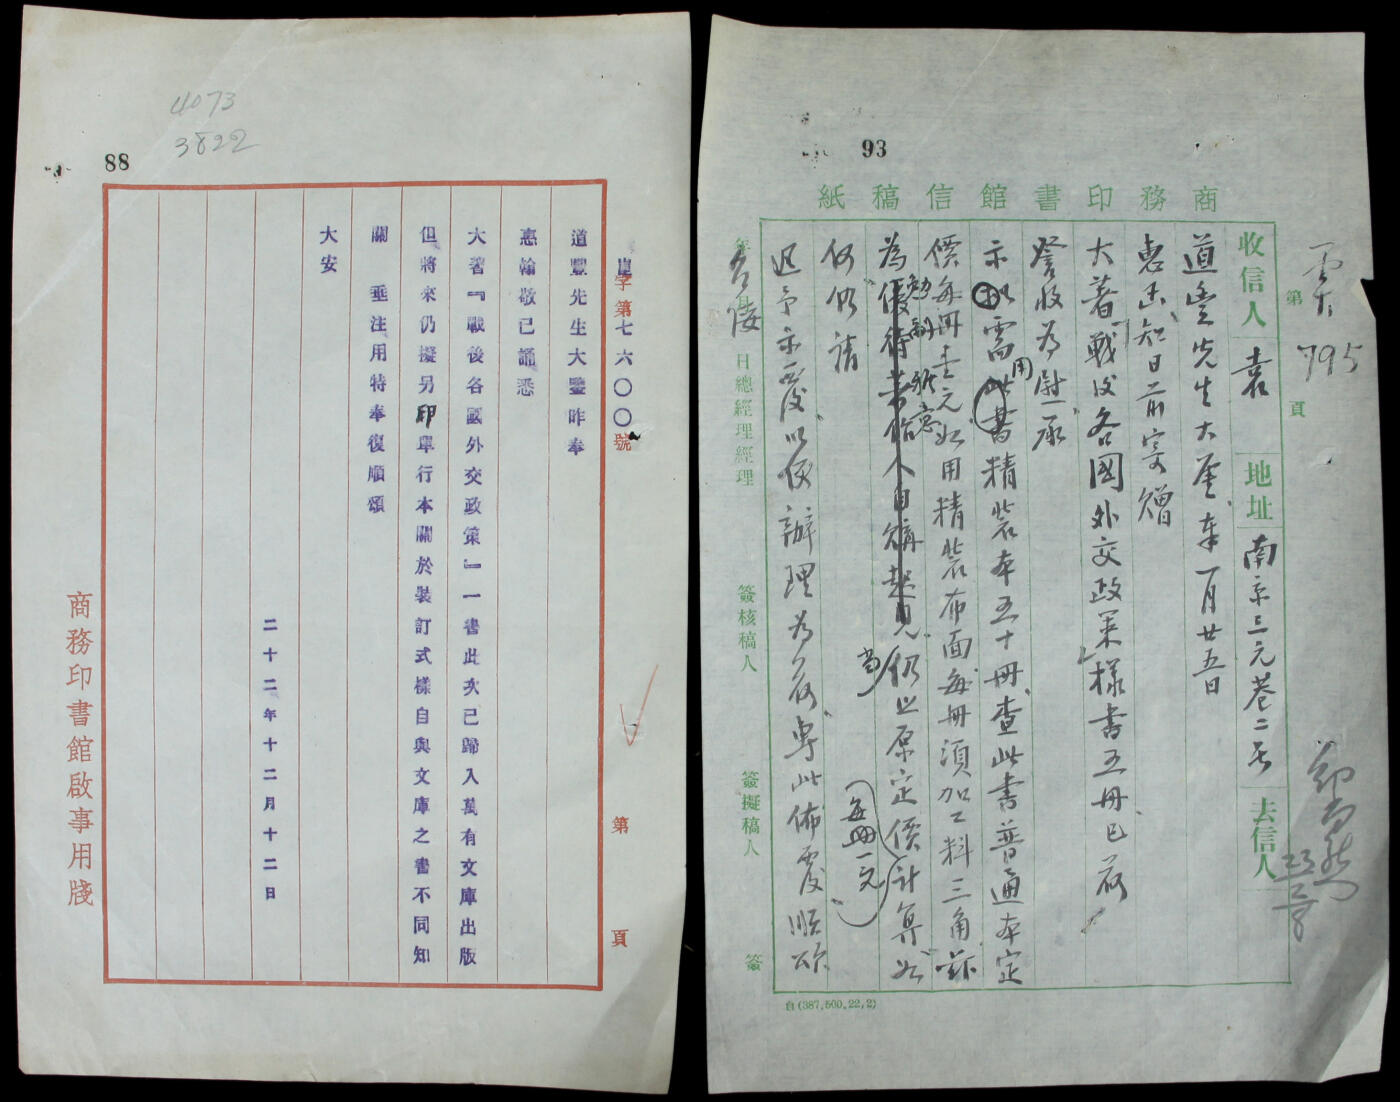 4073
3822
88
字第七六〇〇號
第 頁
道豐先生大鑒昨奉
惠翰敬已誦悉
大著『戰後各國外交政策』一書此次已歸入萬有文庫出版
但將來仍擬另印單行本關於裝訂式樣自與文庫之書不同知
關 垂注用特奉復順頌
大安
二十二年十二月十二日
商務印書館啟事用牋
93
商務印書館信稿紙
第 頁
795
收信人 袁 地址 南京三元巷二号 去信人
道豐先生大鑒奉一月廿五日
惠函知日前寄贈
大著戰後各國外交政策樣書五冊已荷
詧收為慰承
示以需用此書精裝本五十冊查此書普通本定
價每冊壹元如用精裝布面每冊須加工料三角茲
仍照原定價計算
每冊一元
何仍請
迅予示覆以便辦理為荷專此佈覆順頌
台綏
年 月 日總經理經理 簽核稿人 簽擬稿人 簽
自(387,500,22,2)